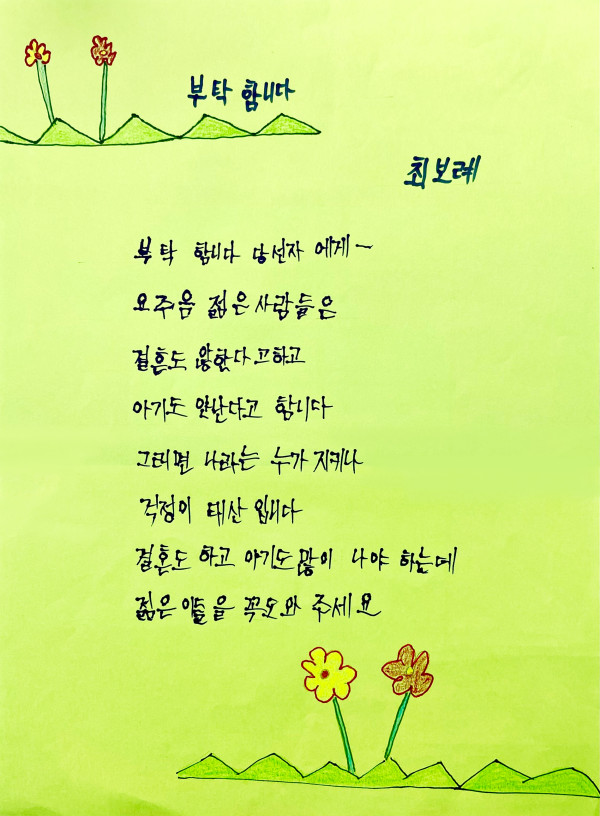 부탁 합니다
최보례
부탁 합니다 당선자 에게~
요주음 젊은사람들은
결혼도 않한다고하고
아기도 안난다고 합니다
그러면 나라는 누가 지키나
걱정이 태산 입니다
결혼도 하고 아기도 많이 나야 하는데
젊은이들을 꼭도와 주세요